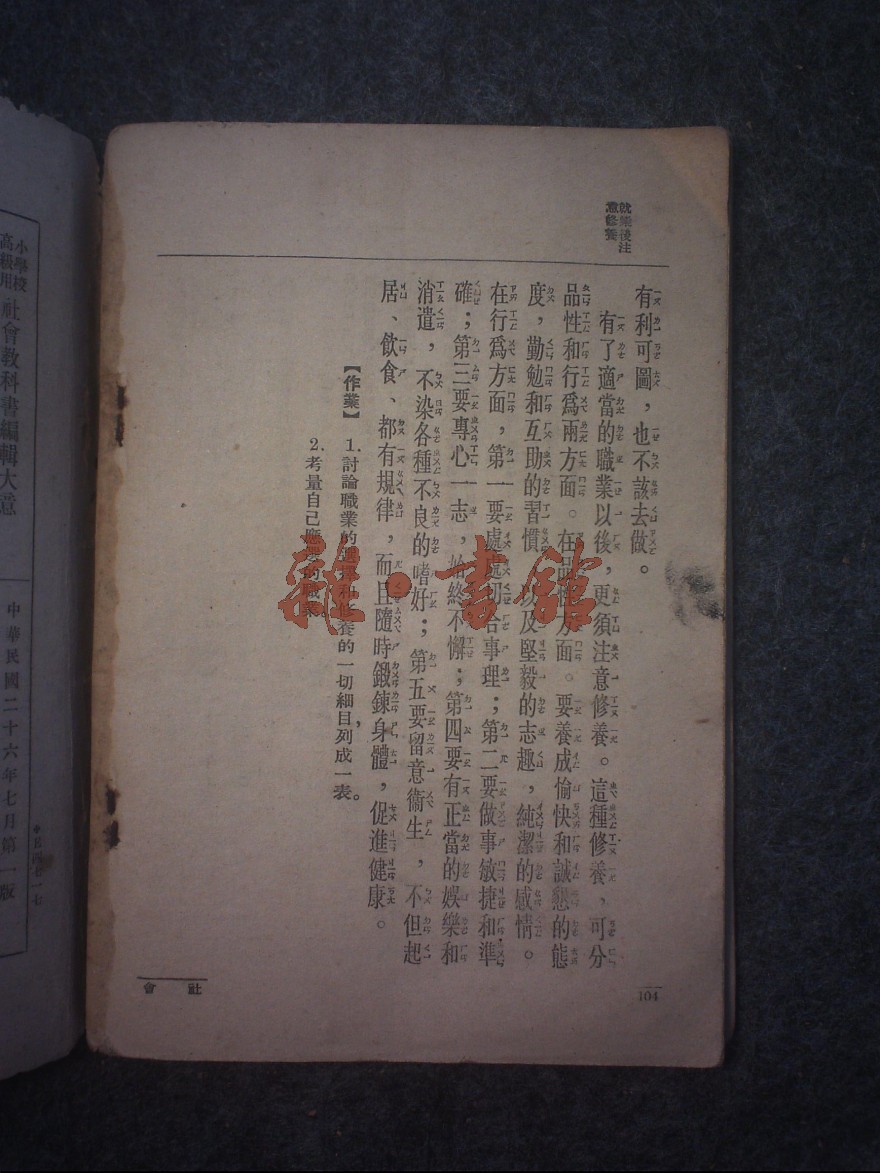 就業後注
意修養
有利可圖，也不該去做。
有了適當的職業以後，更須注意修養。這種修養，可分
品性和行爲兩方面。在品性方面。要養成愉快和誠懇的態
度，勤勉和互助的習慣 以及堅毅的志趣，純潔的感情。
在行爲方面，第一要處處切合事理；第二要做事敏捷和準
確；第三要專心一志，始終不懈；第四要有正當的娛樂和
消遣，不染各種不良的嗜好；第五要留意衞生，不但起
居、飲食、都有規律，而且隨時鍛鍊身體，促進健康。
【作業】 1.討論職業的 和 養的一切細目，列成一表。
2.考量自己應 的職業。
社會
104
雜·書館
小學校
高級用
社會教科書編輯大意
中華民國二十六年七月第一版